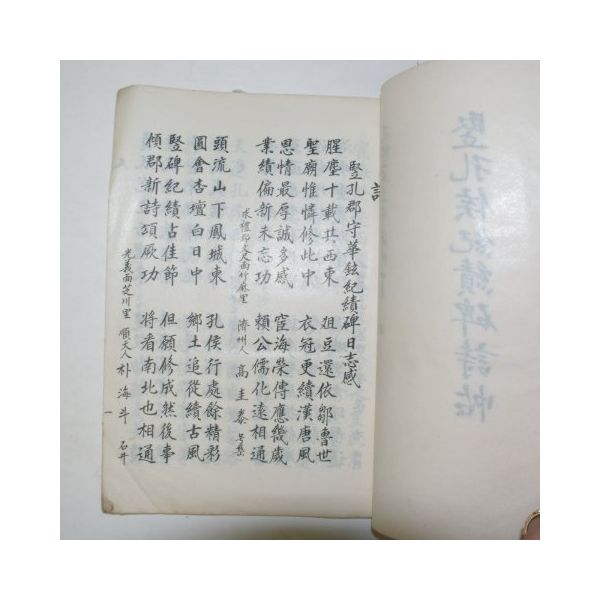 詩
竪孔郡守華鉉紀績碑日志感
腥塵十載共西東 俎豆還依鄒魯世
聖廟惟憐修此中 衣冠更續漢唐風
恩情最厚誠多感 宦海榮傳應幾歲
業績偏新未忘功 賴公儒化遠相通
求禮郡文尺面竹麻里 濟州人 高圭泰
頭流山下鳳城東 孔侯行處餘精彩
圓會杏壇白日中 鄉士追從續古風
竪碑紀績占佳節 但願修成然後事
傾郡新詩頌厥功 將看南北也相通
光義面芝川里 順天人 朴海斗 石井
一
竪孔侯紀績碑詩帖